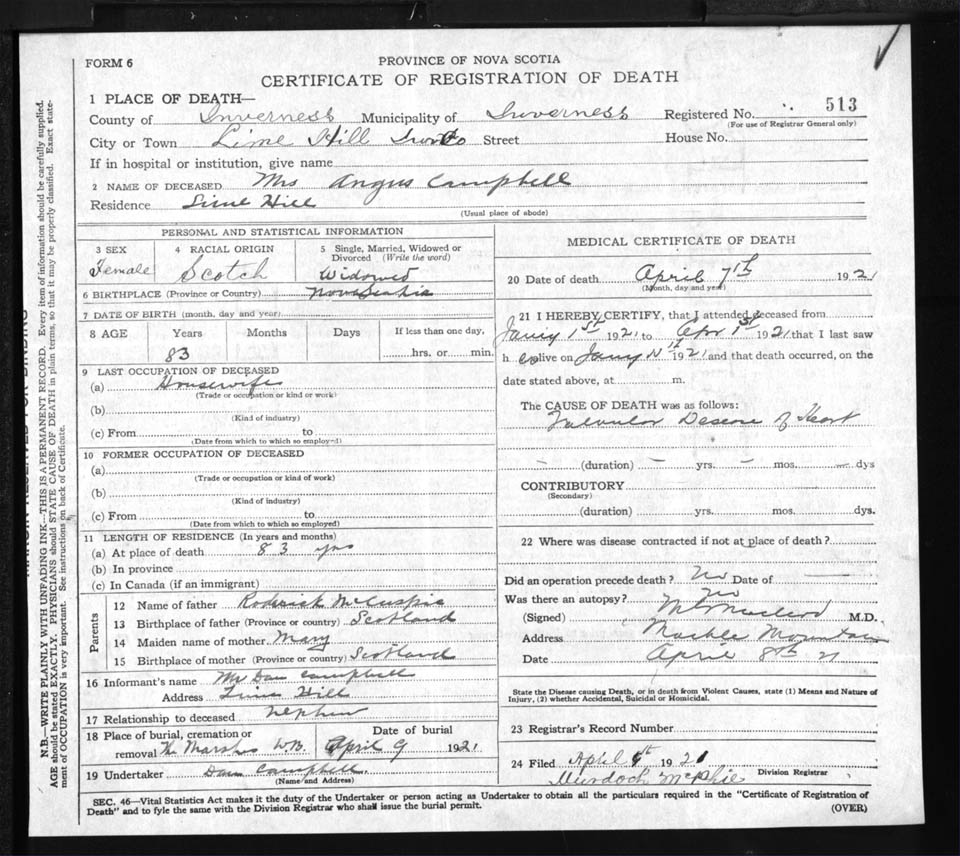 FORM 6
PROVINCE OF NOVA SCOTIA
CERTIFICATE OF REGISTRATION OF DEATH
513
1 PLACE OF DEATH—
County of Inverness Municipality of Inverness Registered No.
(For use of Registrar General only)
City or Town Lime Hill Street House No.
If in hospital or institution, give name
2 NAME OF DECEASED Mrs Angus Campbell
Residence Lime Hill
(Usual place of abode)
PERSONAL AND STATISTICAL INFORMATION
3 SEX 4 RACIAL ORIGIN 5 Single, Married, Widowed or Divorced (Write the word)
Female Scotch Widowed
6 BIRTHPLACE (Province or Country) Nova Scotia
7 DATE OF BIRTH (month, day and year)
8 AGE Years Months Days If less than one day,
83 hrs. or min.
9 LAST OCCUPATION OF DECEASED
(a) Housewife
(Trade or occupation or kind or work)
(b)
(Kind of industry)
(c) From to
(Date from which to which so employed)
10 FORMER OCCUPATION OF DECEASED
(a)
(Trade or occupation or kind of work)
(b)
(Kind of industry)
(c) From to
(Date from which to which so employed)
11 LENGTH OF RESIDENCE (In years and months)
(a) At place of death 83 yrs
(b) In province
(c) In Canada (if an immigrant)
Parents
12 Name of father Roderick McCuspic
13 Birthplace of father (Province or country) Scotland
14 Maiden name of mother Mary
15 Birthplace of mother (Province or country) Scotland
16 Informant's name Mr Dan Campbell
Address Lime Hill
17 Relationship to deceased nephew
18 Place of burial, cremation or removal The Marshes W.B. Date of burial April 9 1921
19 Undertaker Dan Campbell
(Name and Address)
MEDICAL CERTIFICATE OF DEATH
20 Date of death April 7th 1921
(Month, day and year)
21 I HEREBY CERTIFY, that I attended deceased from
1st 1921 to Apr 1st 1921 that I last saw
h er alive on 1921 and that death occurred, on the
date stated above, at m.
The CAUSE OF DEATH was as follows:
Valvular Disease of Heart
(duration) yrs. mos. dys
CONTRIBUTORY
(Secondary)
(duration) yrs. mos. dys.
22 Where was disease contracted if not at place of death?
Did an operation precede death? No Date of
Was there an autopsy? No
(Signed) Macleod M.D.
Address Marble Mountain
Date April 8th 21
State the Disease causing Death, or in death from Violent Causes, state (1) Means and Nature of
Injury, (2) whether Accidental, Suicidal or Homicidal.
23 Registrar's Record Number
24 Filed April 1921
Murdoch McPhie Division Registrar
SEC. 46—Vital Statistics Act makes it the duty of the Undertaker or person acting as Undertaker to obtain all the particulars required in the "Certificate of Registration of
Death" and to fyle the same with the Division Registrar who shall issue the burial permit.
(OVER)
N.B.—WRITE PLAINLY WITH UNFADING INK—THIS IS A PERMANENT RECORD. Every item of information should be carefully supplied.
AGE should be stated EXACTLY. PHYSICIANS should STATE CAUSE OF DEATH in plain terms, so that it may be properly classified. Exact state-
ment of OCCUPATION is very important. See instructions on back of Certificate.